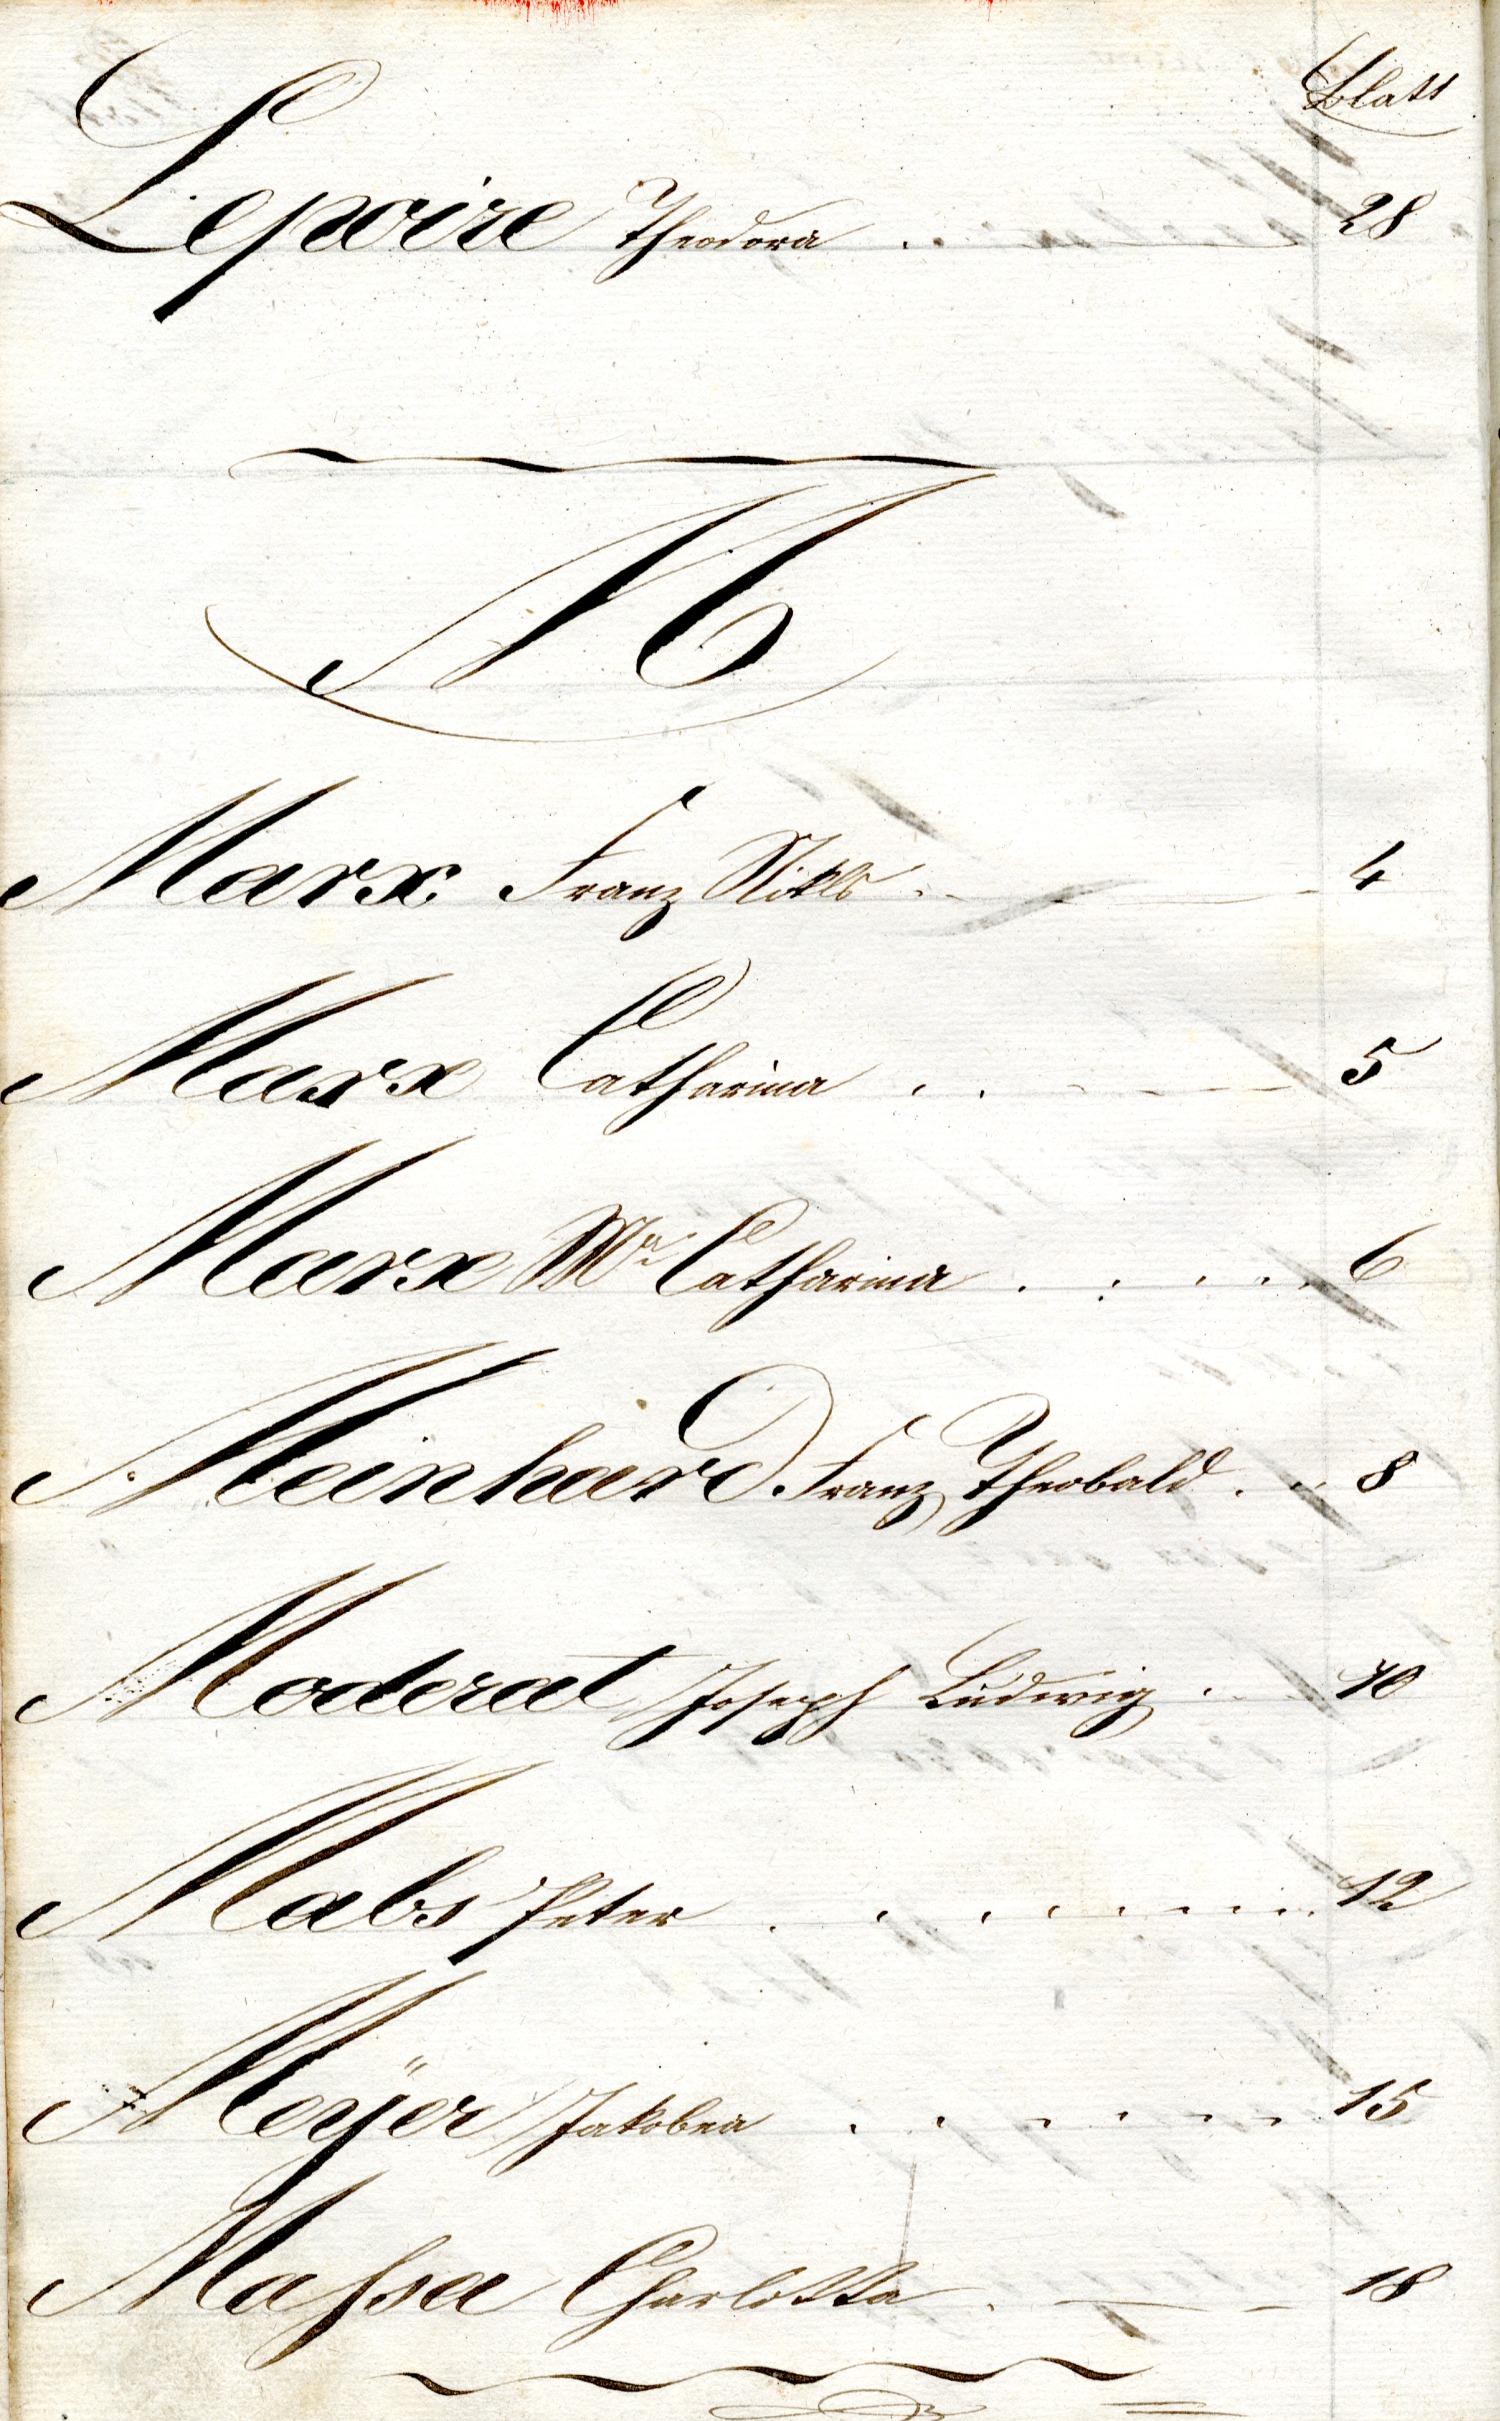 Blatt
Lepoire Theodora 28
M
Marx Franz Nikls 4
Marx Catharina 5
Marx Mr. Catharina 6
Meinhard Franz Theobald 8
Moderat Joseph Ludwig 10
Mabs Peter 12
Meÿer Jakobea 15
Maßa Charlotta 18